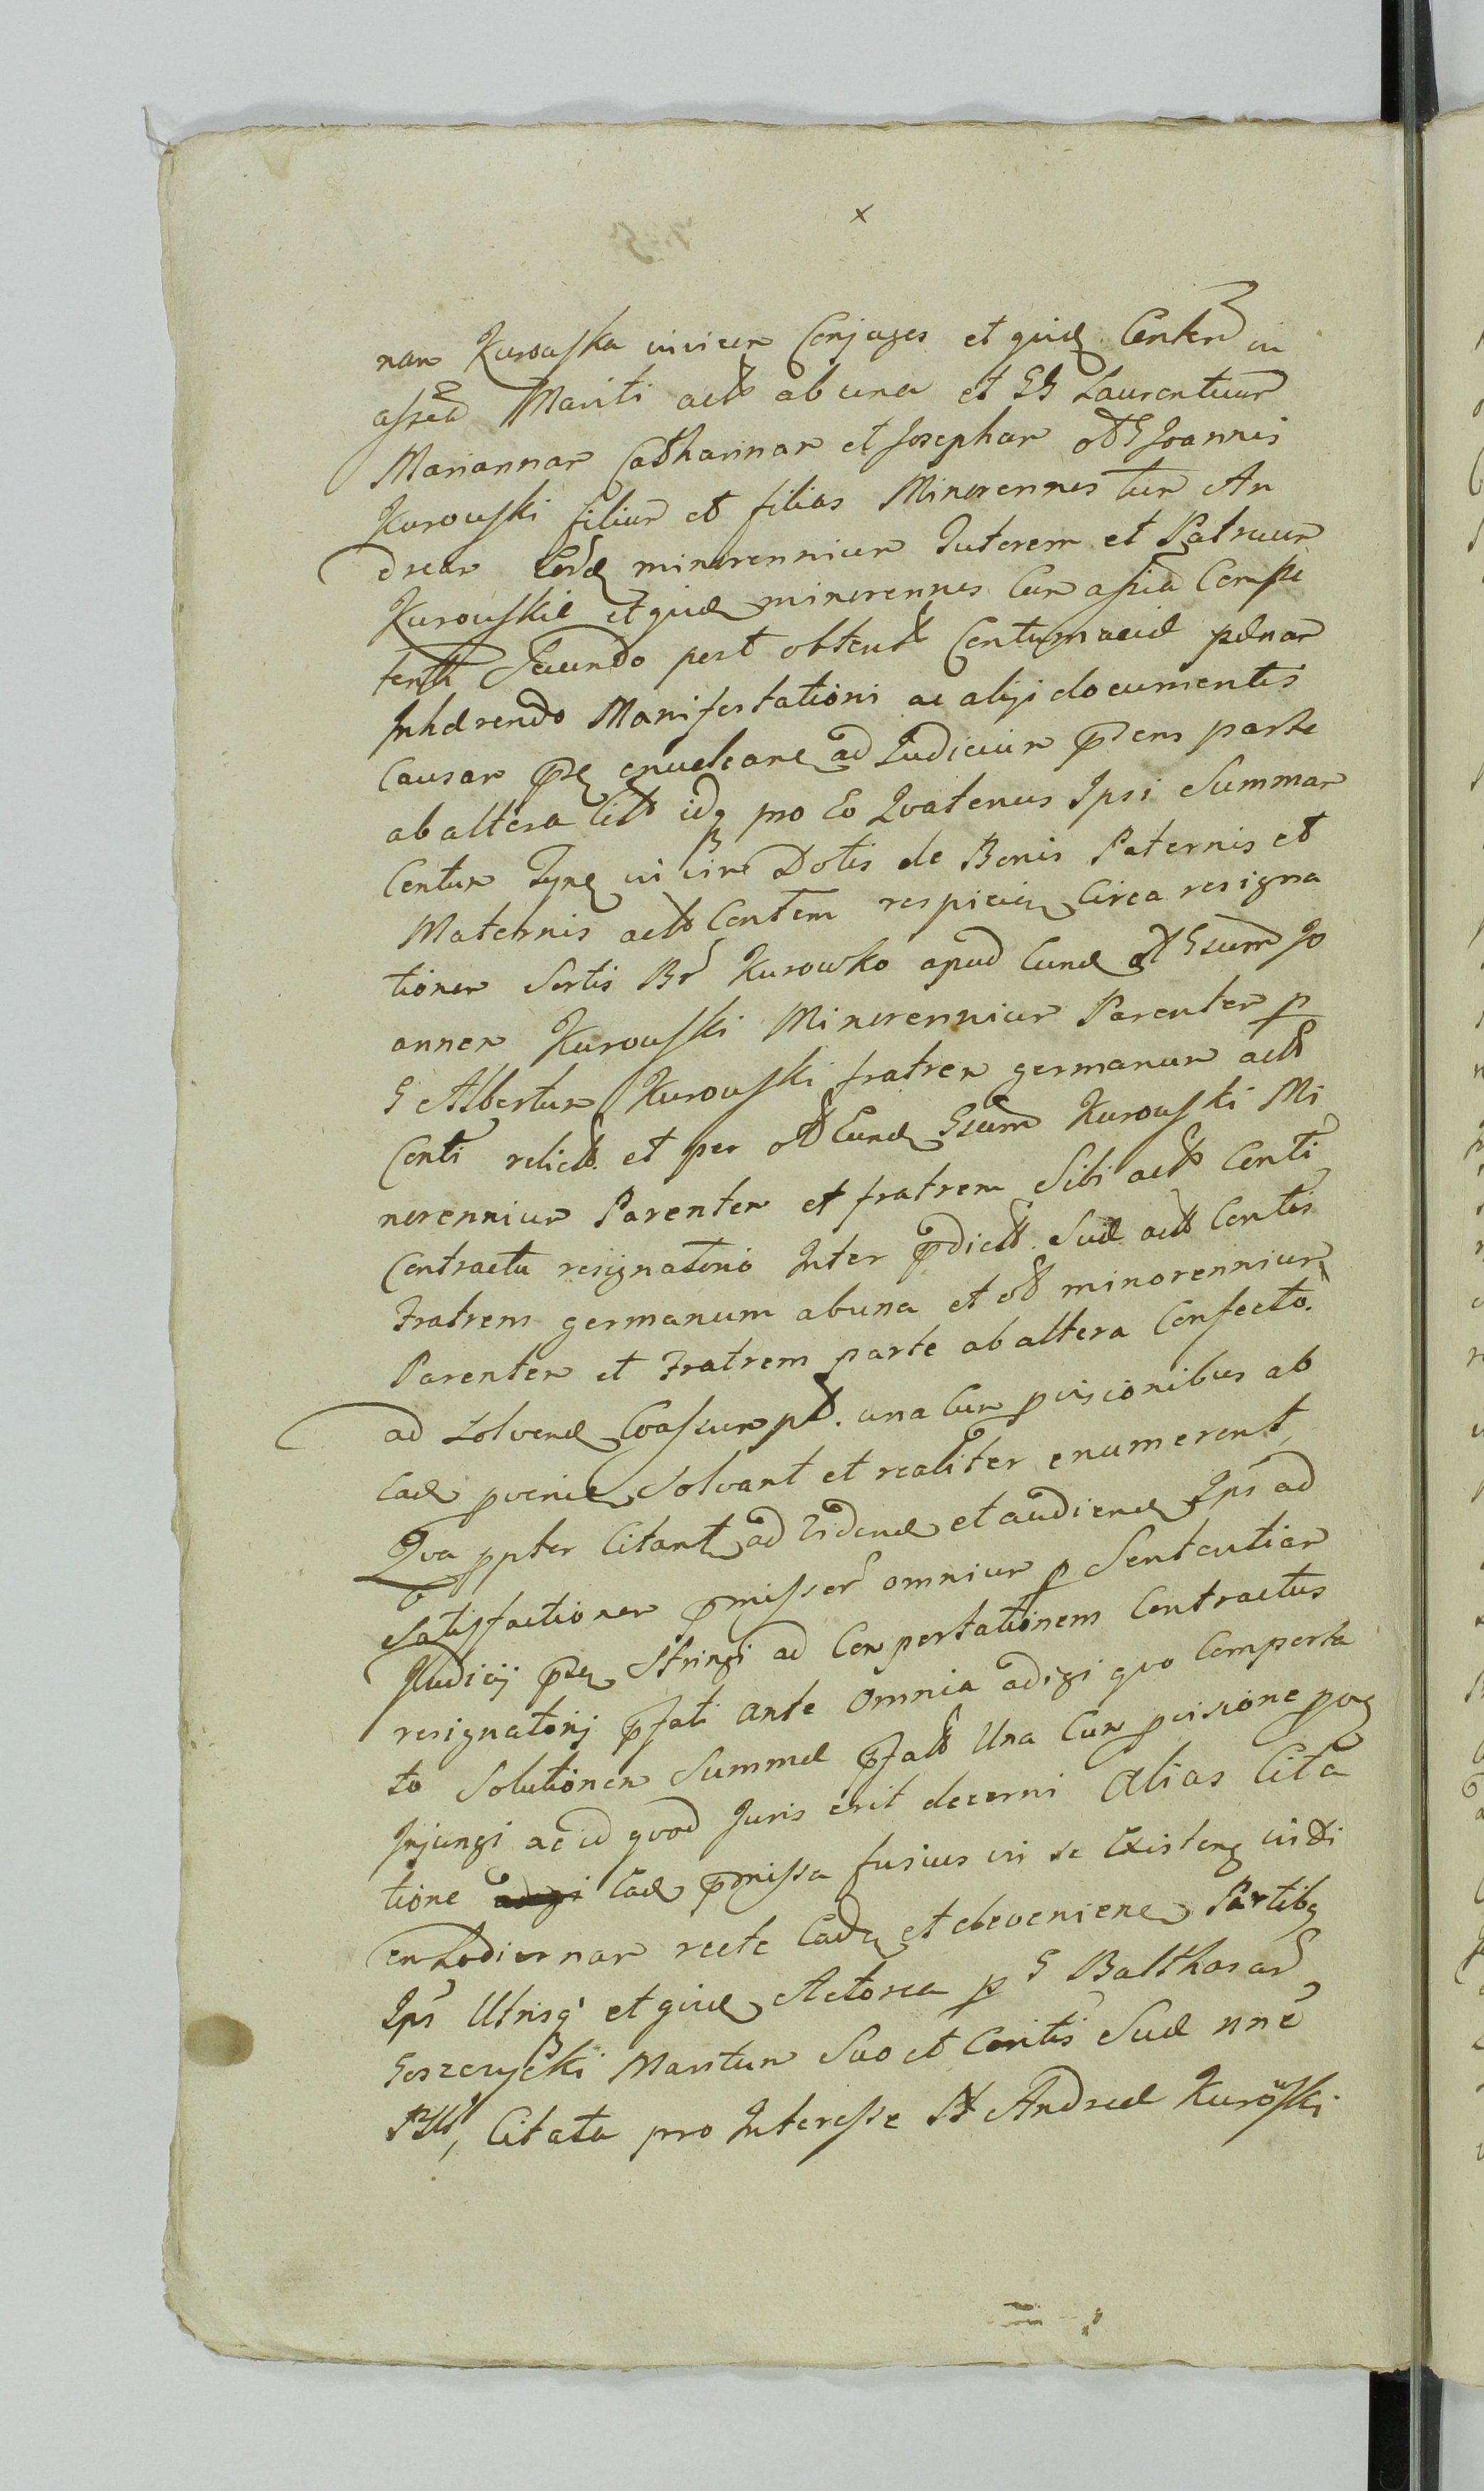 x
nam Kurowska invicem Conjuges et quid Contem in
assia Mariti actb ab una et GG Laurentium
Mariannam Catharinam et Josepham olt G Joannis
Kurowski filium et filias Minorennes tum An
dream Eord minorennium Tutorem et Patruum
Kurowskie et quid minorennes Cum assia Compe
tenti Secundo post obtent Contumaciae paenam
Inhaerendo Manifestationi ac alijs documentis
Causam enucleane ad Judicium pns parte
ab altera Citt idq pro Eo Quatenus Ipsi Summam
Centum in vim Dotis de Bonis Paternis et
Maternis actb Contem respicien Circa resigna
tionem Sortis Br Kurowko apud Eund olt Gsum Jo
annem Kurowski Minorennium Parentem p
G Albertum Kurowski fratrem germanum actb
Conti relictt et per olt Eund Gsum Kurowski Mi
norennium Parentem et fratrem Sibi actb Conti
Contractu resignatorio Inter pdictt Suae actb Contis
Fratrem germanum ab una et olt minorennium
Parentem et Fratrem parte ab altera Confecto.
ad solvend una Cum pvisionibus ab
Ead pvenien Solvant et realiter enumerent,
Qva ppter Citant ad Vidend et audiend Ips ad
Satisfactionem pmissor omnium p Sententiam
Judicij pns Stringi ad Comportationem Contractus
resignatorij pfati ante omnia adigi quo Comporta
to Solutionem Summae pfatt Una Cum pvisione
Injungi ac id quod Juris erit decerni Alias Cita
tione Ead pmissa fusius in se Existens indi
em hodiernam recte Caden et deveniene Partibq
Ips Utrisq et quid Actorea p G Balthasar
Goszczycki Maritum Suo et Contis Suae nne
Citata pro Interesse Andreae Kurowski